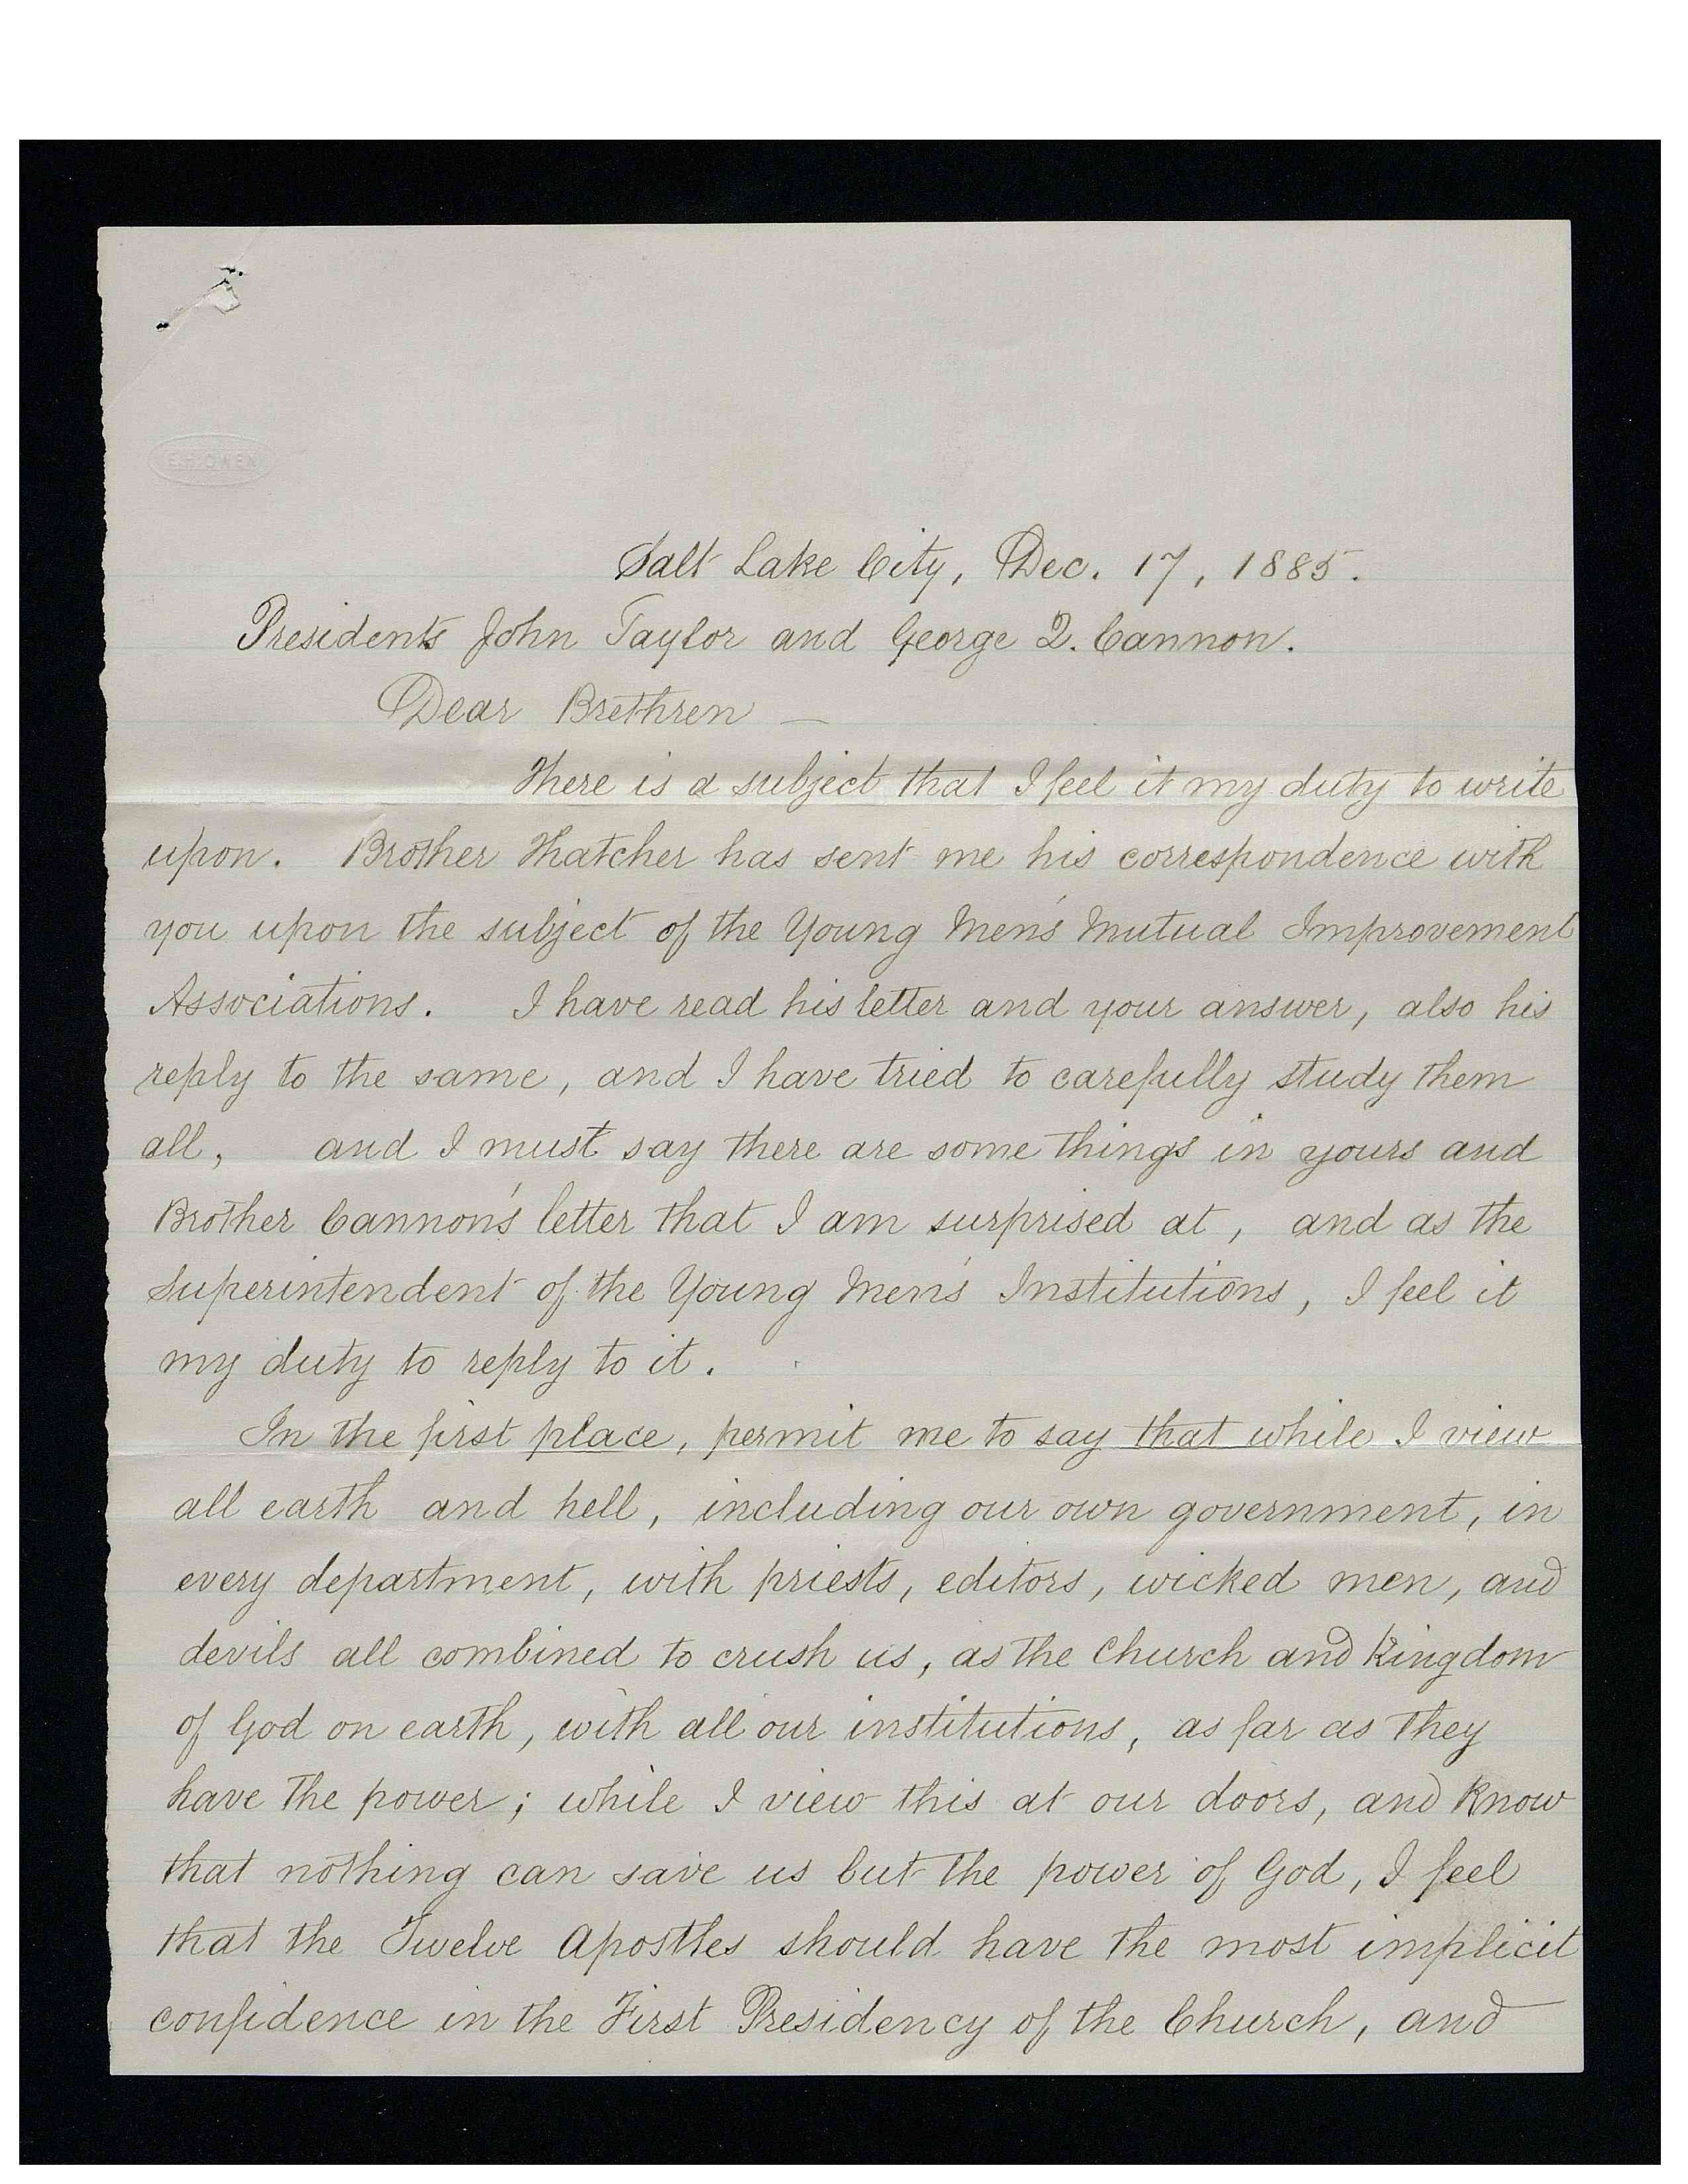 E.H.OWEN
Salt Lake City, Dec. 17, 1885.
Presidents John Taylor and George Q. Cannon.
Dear Brethren —
There is a subject that I feel it my duty to write
upon. Brother Thatcher has sent me his correspondence with
you upon the subject of the Young Men's Mutual Improvement
Associations. I have read his letter and your answer, also his
reply to the same, and I have tried to carefully study them
all, and I must say there are some things in yours and
Brother Cannon's letter that I am surprised at, and as the
Superintendent of the Young Men's Institutions, I feel it
my duty to reply to it.
In the first place, permit me to say that while I view
all earth and hell, including our own government, in
every department, with priests, editors, wicked men, and
devils all combined to crush us, as the Church and Kingdom
of God on earth, with all our institutions, as far as they
have the power; while I view this at our doors, and know
that nothing can save us but the power of God, I feel
that the Twelve Apostles should have the most implicit
confidence in the First Presidency of the Church, and